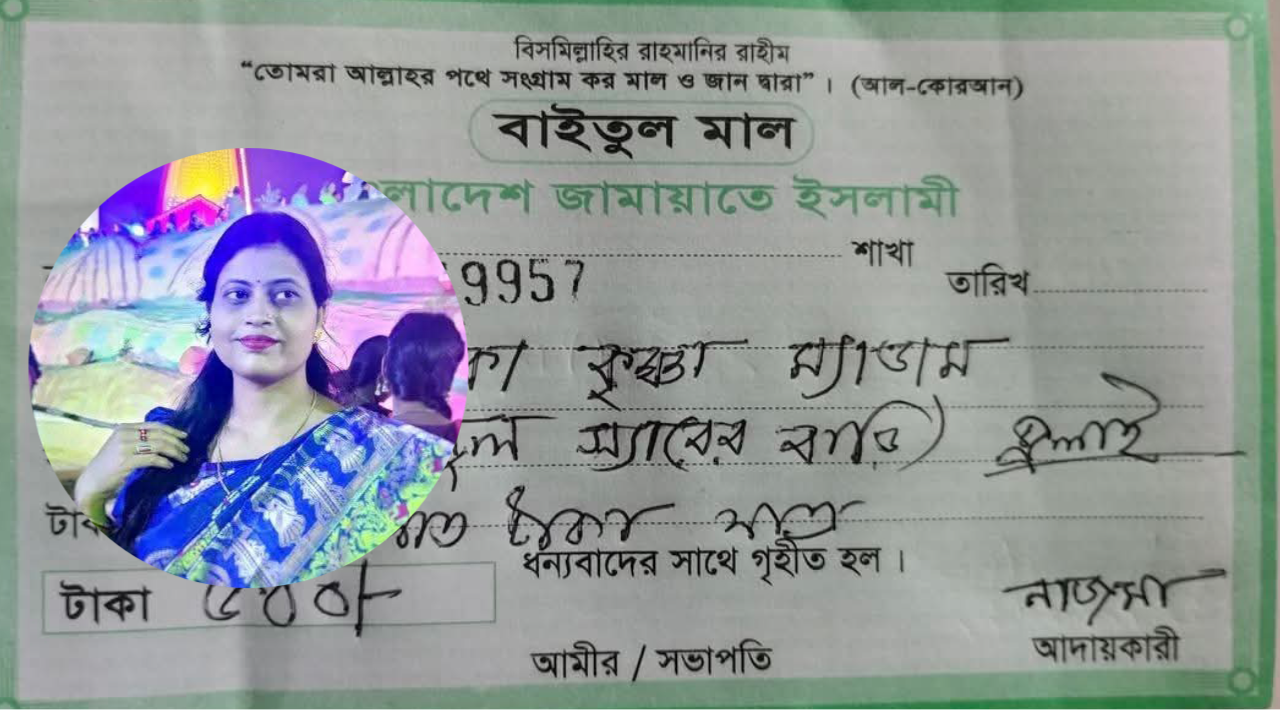 বিসমিল্লাহির রাহমানির রাহীম
“তোমরা আল্লাহর পথে সংগ্রাম কর মাল ও জান দ্বারা”। (আল-কোরআন)
বাইতুল মাল
লাদেশ জামায়াতে ইসলামী
শাখা
9957 তারিখ
কা কৃষ্ণা ম্যাডাম
স্যারের বাড়ি) জুলাই
টাকা মাত্র
ধন্যবাদের সাথে গৃহীত হল।
টাকা ৫০০/-
নাজমা
আমীর / সভাপতি আদায়কারী